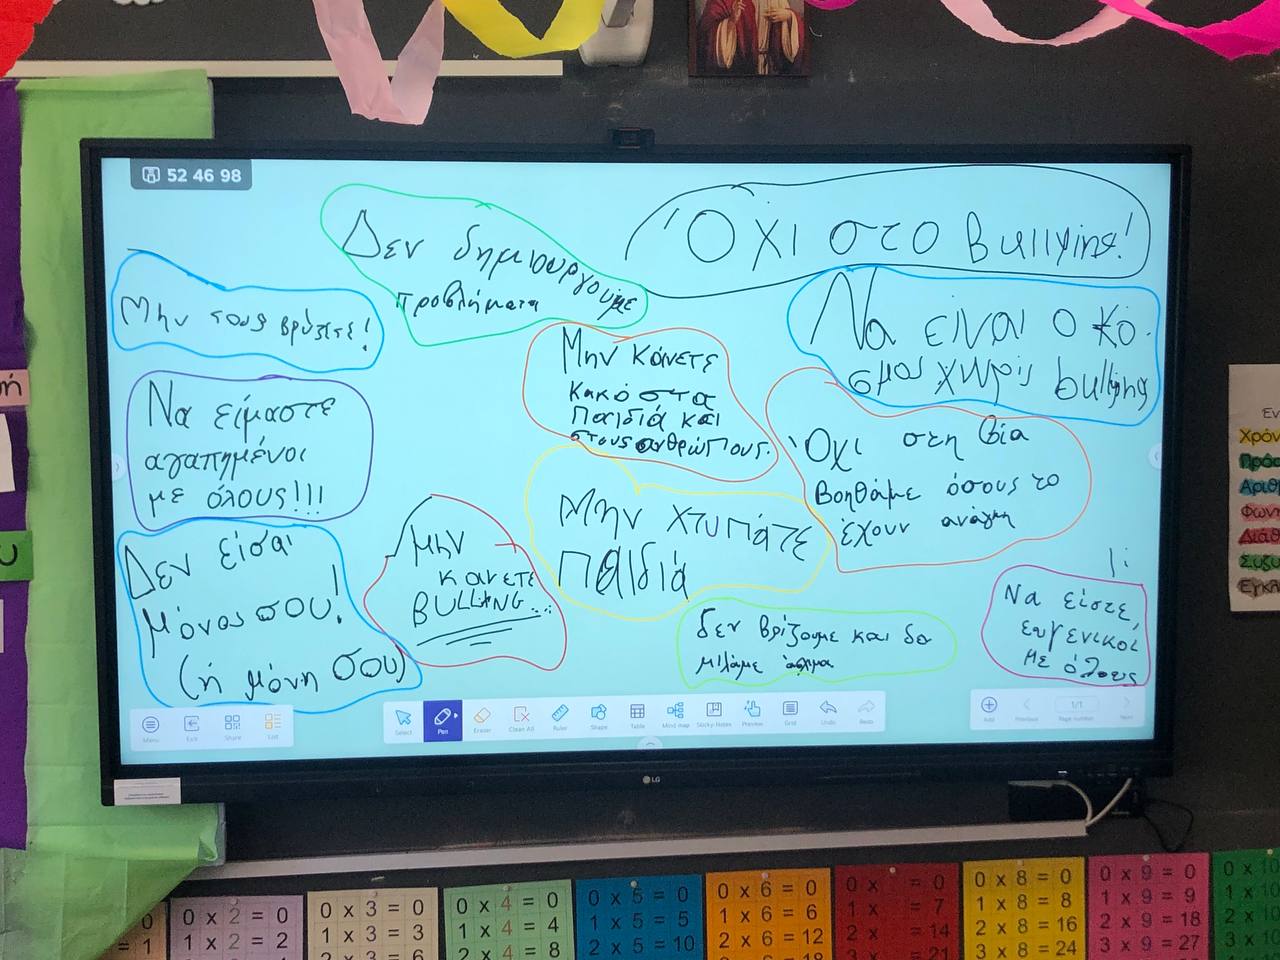 52 46 98
Όχι στο Bullying!
Δεν δημιουργούμε
προβλήματα
Μην τους βρίζετε!
Να είναι ο κό-
σμος χωρίς bullying
Μην κάνετε
κακό στα
παιδιά και
στους ανθρώπους.
Να είμαστε
αγαπημένοι
με όλους!!!
Όχι στη βία
Βοηθάμε όσους το
έχουν ανάγκη
Μην χτυπάτε
παιδιά
Δεν είσαι
μόνος σου!
(ή μόνη σου)
μην
κανετε
BULLING...
δεν βρίζουμε και δα
μιλάμε άσχημα
Να είστε,
ευγενικοί
με όλους
Menu
Exit
Share
List
Select
Pen
Eraser
Clean All
Ruler
Shape
Table
Mind map
Sticky Notes
Preview
Grid
Undo
Redo
Add
Previous
1/1
Page number
Next
LG
Χρόν
Πρόσ
Αριθ
Φων
Διάθ
Συζυ
Εγκλ
0
= 1
0 x 2 = 0
1 x 2 = 2
0 x 3 = 0
1 x 3 = 3
0 x 4 = 0
1 x 4 = 4
2 x 4 = 8
0 x 5 = 0
1 x 5 = 5
2 x 5 = 10
0 x 6 = 0
1 x 6 = 6
2 x 6 = 12
= 0
1 x = 7
2 x = 14
0 x 8 = 0
1 x 8 = 8
2 x 8 = 16
3 x 8 = 24
0 x 9 = 0
1 x 9 = 9
2 x 9 = 18
3 x 9 = 27
0 x 10
1 x 10
2 x 10
3 x 10